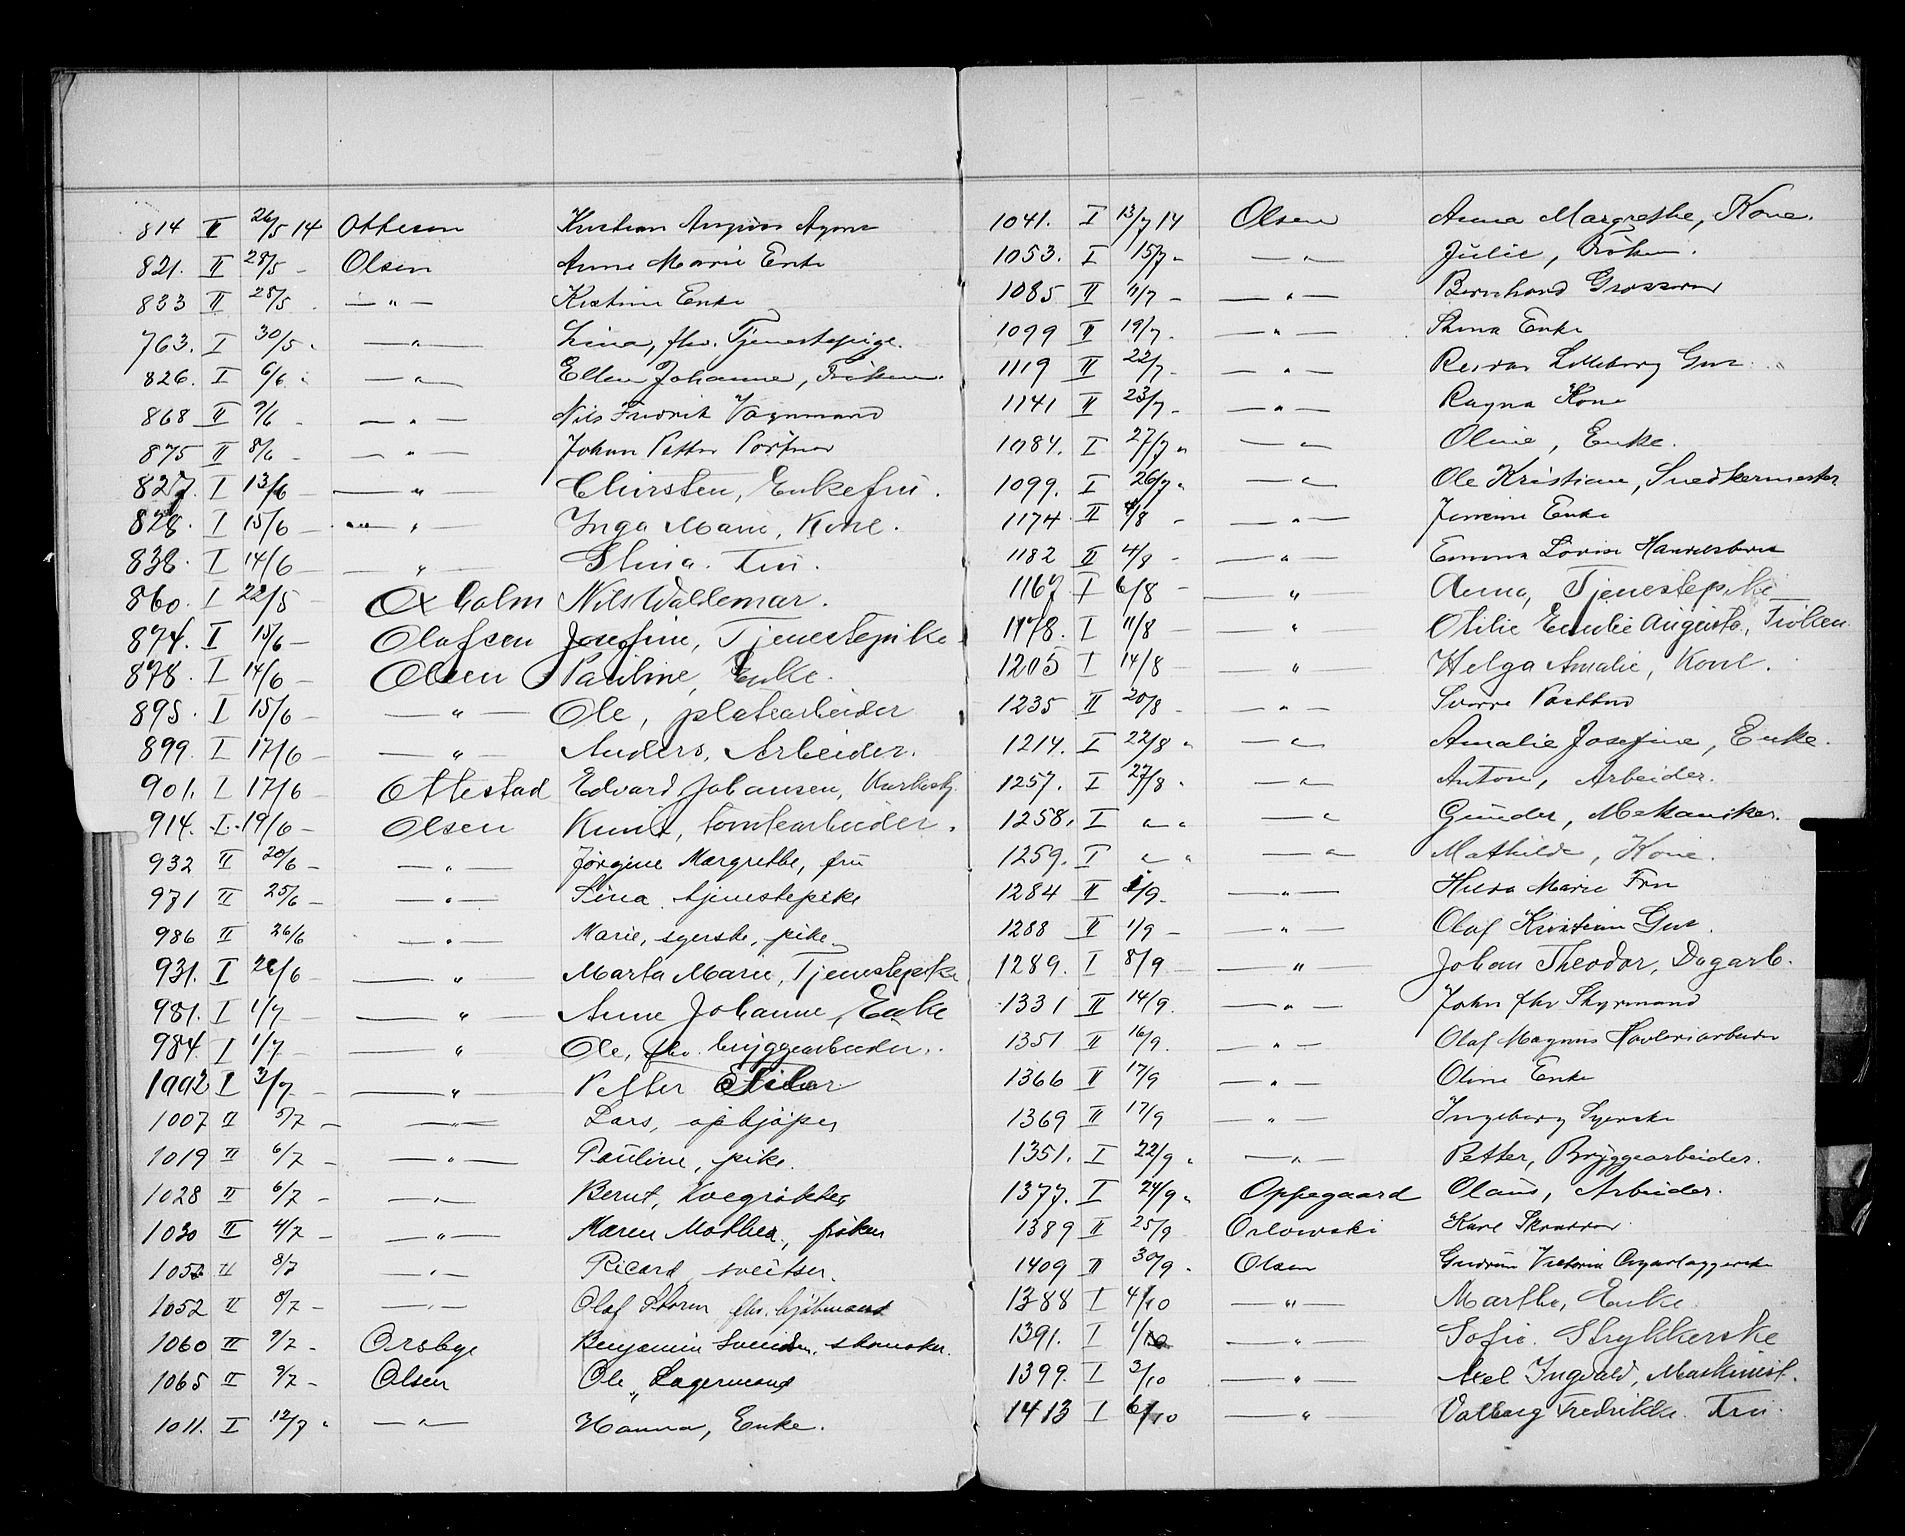 814 II 26/5 14 Ottesen Kristian
821. II 28/5 - Olsen Anne Marie Enke
833 II 28/5 - — " — Kristine Enke
763. I 30/5 " — " — Lina, fhv. Tjenestepige.
826. I 6/6 " — " — Ellen Johanne, Frøken.
868 II 9/6 - — " — Nils Fredrik Vognmand
875 II 8/6 - — " — Johan Petter Portner
827. I 13/6 - — " — Chirsten, Enkefru.
828. I 15/6 - — " — Inga Marie, Kone.
838. I 14/6 - — " — Stina. Fru.
860. I 22/5 - Oxholm Nils Waldemar.
874. I 15/6 - Olafsen Josefine, Tjenestepike
878. I 14/6 - Olsen Pauline, Enke.
895. I 15/6 - — " — Ole, platearbeider
899. I 17/6 - — " — Anders, Arbeider.
901. I 17/6 - Ottestad Edvard Johansen,
914. I 19/6 - Olsen Knut, tomtearbeider.
932 II 20/6 - — " — Jørgine Margrethe, fru
971 II 25/6 - — " — Lina, tjenestepike
986 II 26/6 — " — Marie, syerske, pike
931. I 26/6 - — " — Marta Marie, Tjenestepike
981. I 1/7 - — " — Anne Johanne, Enke
984. I 1/7 - — " — Ole, fhv. bryggearbeider.
1002 I 3/7 - — " — Petter
1007 II 5/7 - — " — Lars, opkjøper
1019 II 6/7 - — " — Pauline, pike.
1028 II 6/7 - — " — Bernt, Kvægrøkter
1030 II 4/7 - — " — Maren Mathea, frøken
1052 II 8/7 — " — Ricard, sveitser.
1052 II 8/7 - — " — Olaf Storm fhv.
1060 II 9/7 - Orsbye Benjamin skomaker.
1065 II 9/7 - Olsen Ole, Lagermand
1011. I 12/7 " — " — Hanna, Enke.
1041. I 13/7 14 Olsen Anna Margrethe, Kone.
1053. I 15/7 " — " — Julie, Frøken.
1085 II 11/7 - — " — Bernhard Grosserer
1099 II 19/7 - — " — Stina Enke
1119 II 22/7 - — " — Reidar Lilleborg Gut
1141 II 23/7 - — " — Ragna Kone
1084. I 27/7 " — " — Oline, Enke.
1099. I 26/7 " — " — Ole Kristian, Snedkermester
1174 II 4/8 - — " — Enke
1182 II 4/8 - — " — Emma Lovise
1167 I 6/8 - — " — Anna, Tjenestepike
1178. I 11/8 - — " — Otilie Emilie Augusta, Frøken.
1205 I 14/8 - — " — Helga Amalie, Kone.
1235 II 20/8 - — " — Sverre Postbud
1214. I 22/8 " — " — Amalie Josefine, Enke.
1257. I 27/8 " — " — Anton, Arbeider.
1258. I " " — " — Gunder, Mekaniker.
1259. I " " — " — Mathilde, Kone.
1284 II 1/9 - — " — Hilda Marie Fru
1288 II 1/9 - — " — Olaf Kristian Gut.
1289. I 8/9 - — " — Johan Theodor, Dagarb.
1331 II 14/9. — " — John fhv Styrmand
1351 II 16/9. — " — Olaf Magnus Høvleriarbeider
1366 II 17/9 — " — Oline Enke
1369 II 17/9 — " — Ingeborg Syerske
1351. I 22/9 " — " — Petter, Bryggearbeider.
1377. I 24/9 " Oppegaard Olaus, Arbeider.
1389 II 25/9 Orlowski Karl Skrædder
1409 II 30/9 - Olsen Gudrun Victoria Cigarlæggerske
1388 I 4/10 — " — Marthe, Enke
1391. I 1/10 — " — Sofie. Strykkerske
1399. I 3/10 — " — Axel Ingvald, Maskinist.
1413 I 6/10 — " — Valborg Fredrikke. Fru.